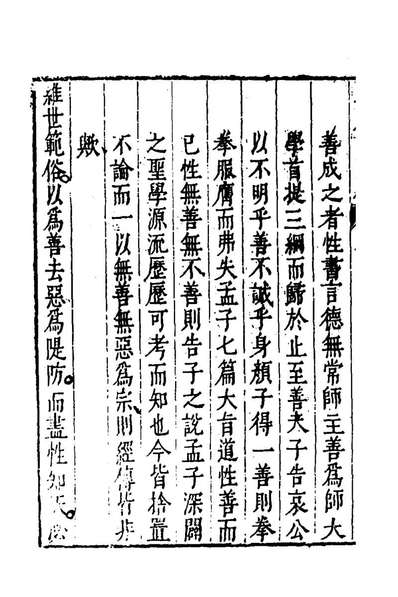 善成之者性書言德無常師主善爲師大
學首提三綱而歸於止至善夫子告哀公
以不明乎善不誠乎身顏子得一善則拳
拳服膺而弗失孟子七篇大旨道性善而
已性無善無不善則告子之說孟子深闢
之聖學源流歷歷可考而知也今皆捨置
不論而一以無善無惡爲宗則經傳皆非
歟
維世範俗以爲善去惡爲隄防而盡性知天必